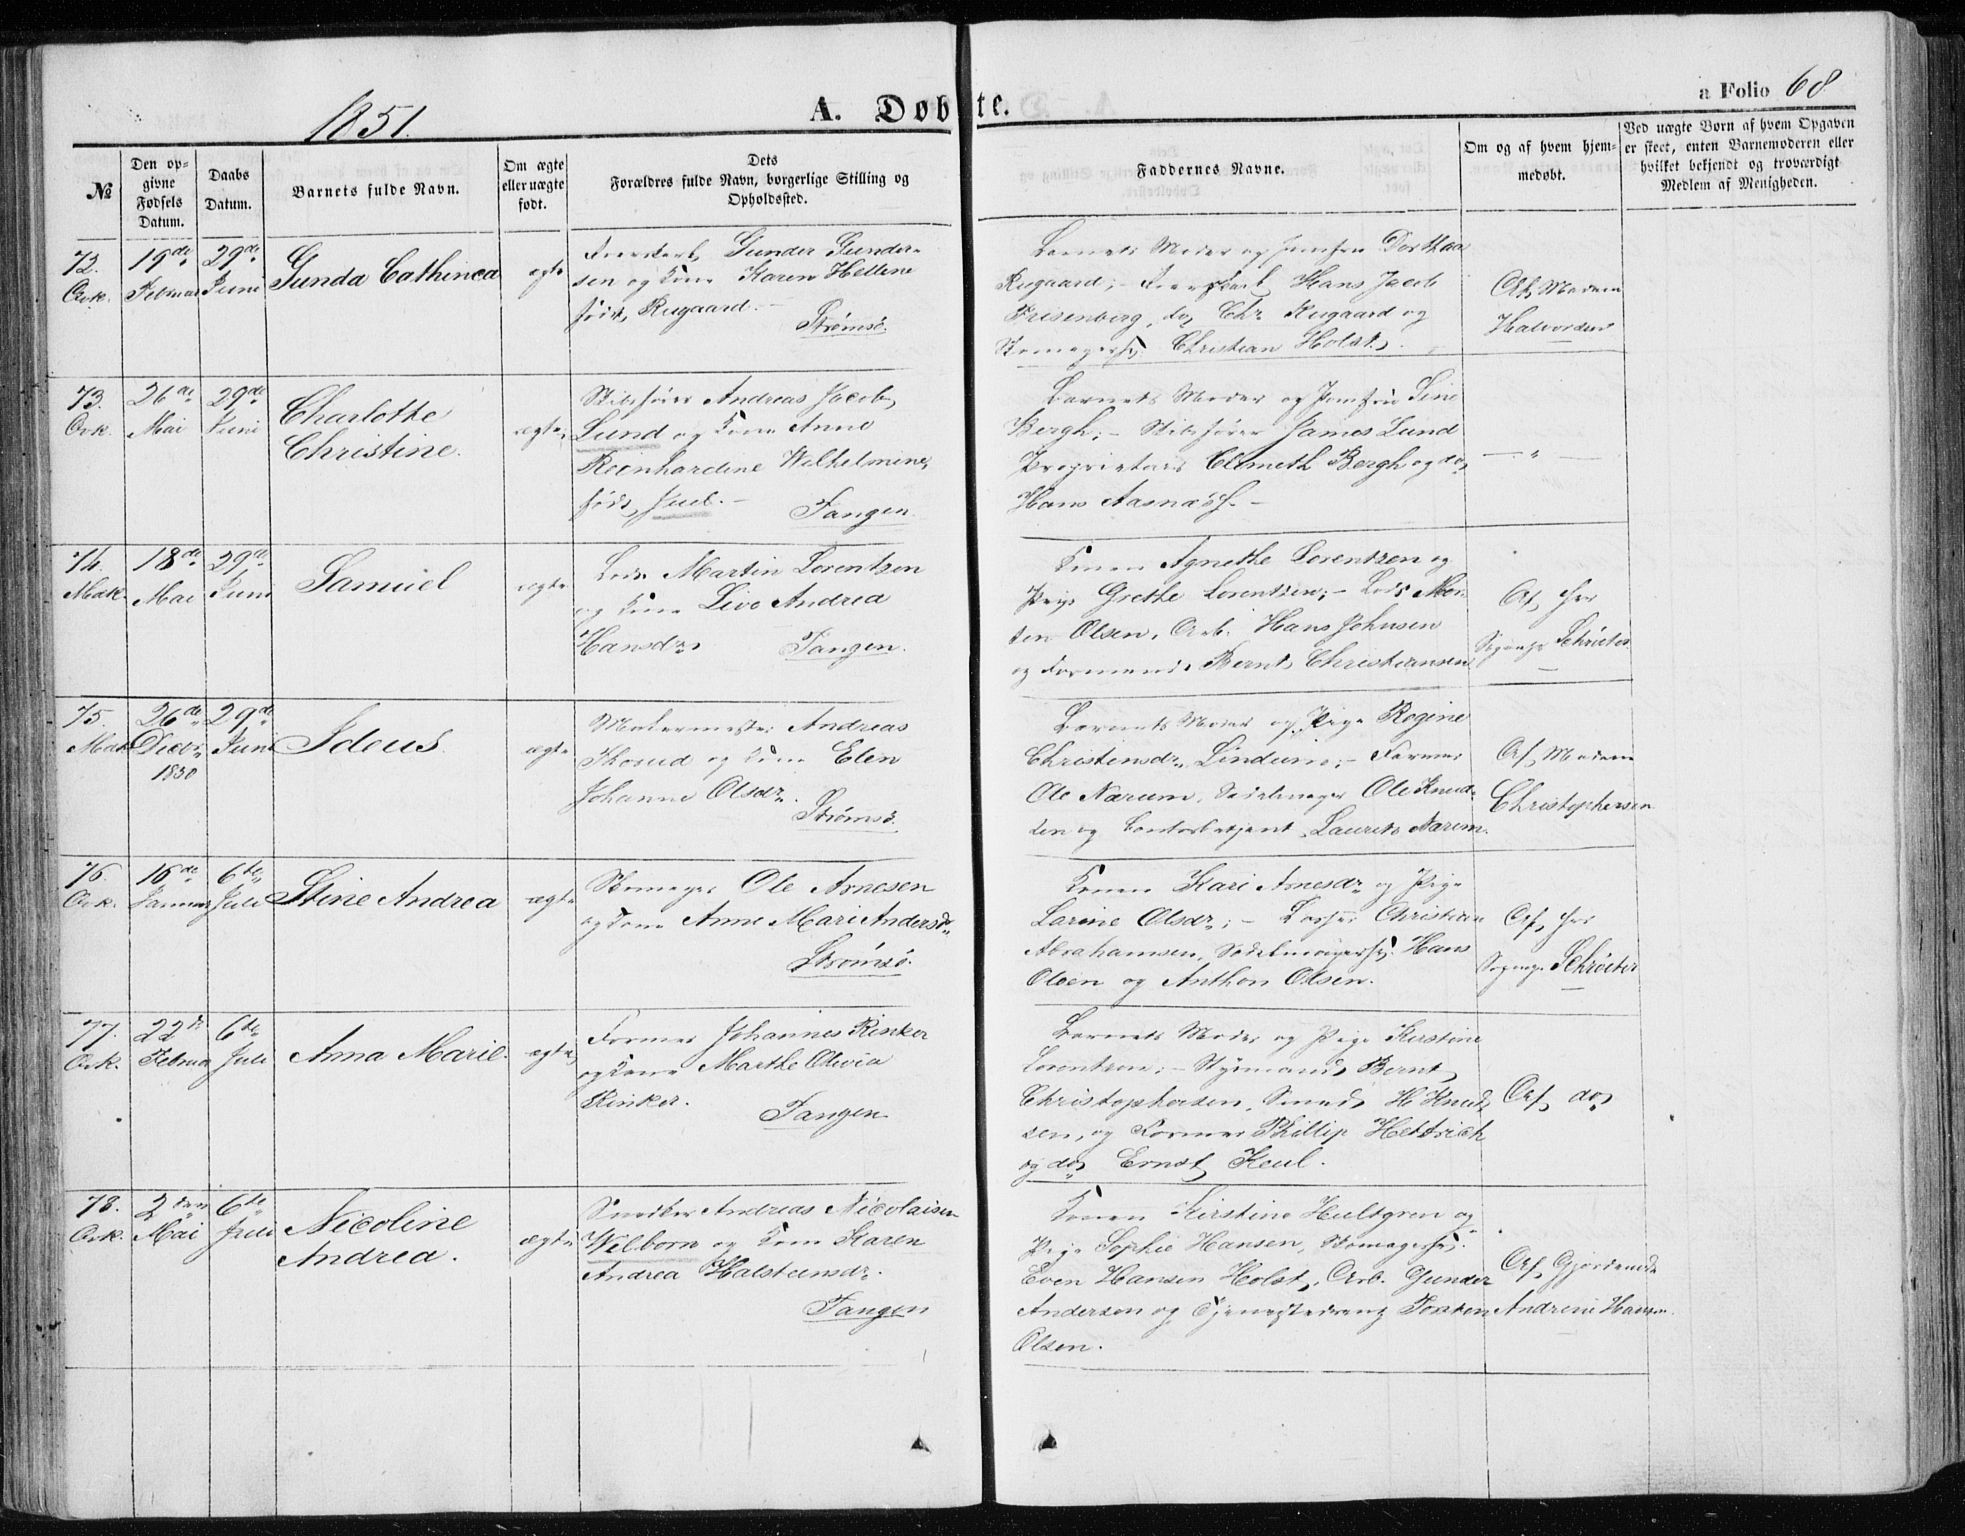 1851.
A. Døbte.
a Folio 68
№
Den op-
givne
Fødsels
Datum.
Daabs
Datum.
Barnets fulde Navn.
Om ægte
eller uægte
født.
Dets
Forældres fulde Navn, borgerlige Stilling og
Opholdssted.
Faddernes Navne.
Om og af hvem hjem-
medøbt.
Ved uægte Børn af hvem Opgaven
er skeet, enten Barnemoderen eller
hvilket bekjendt og troværdigt
Medlem af Menigheden.
72.
Qvk.
19de
Februar
29de
Juni
Gunda Cathinca
ægte
Gunder Gunder-
sen og Kone Karen Helline
født Rugaard.
Strømsø.
Barnets Moder og Jomfru Dorthea
Rugaard; - Hans Jacob
Frisenberg, do Chr. Rugaard og
Christian Holst.
Af Madam
Halvorsen
73.
Qvk.
26de
Mai
29de
Juni
Charlotte
Christine.
ægte
Skibsfører Andreas Jacob
Lund og Kone Anne
Reinhardine Wilhelmine
født Juel.
Tangen.
Barnets Moder og Jomfru Sine
Bergh; - Skibsfører James Lund
Proprietær Clemeth Bergh og do
Hans Aasnæss. -
— „ —
74.
Mdk.
18de
Mai
29de
Juni
Samuel
ægte
Lods Martin Lorentzen
og Kone Live Andrea
Hansdr.
Tangen.
Konen Agnethe Lorentzen og
Pige Grethe Lorentzen; - Lods Mor-
ten Olsen, Arb. Hans Johnsen
og Formand Bernt Christiansen
Af Hr
Schrøeter
75.
Mdk.
26de
Decbr.
1850
29de
Juni
Ideus.
ægte
Malermester Andreas
Thorud og Kone Elen
Johanne Olsdr.
Strømsø.
Barnets Moder og Pige Regine
Christensdr. Lindum; - Farver
Ole Narum, Sadelmager Ole Knud-
sen og Contorbetjent Laurits Narum.
Af Madam
Christophersen
76.
Qvk.
16de
Januar
6te
Juli
Stine Andrea
ægte
Skomager Ole Arnesen
og Kone Anne Mari Andersdr.
Strømsø.
Konen Kari Arnesdr. og Pige
Larine Olsdr; - Christian
Abrahamsen, Sadelmagersv. Hans
Olsen og Anthon Olsen.
Af Hr
Schrøeter
77.
Qvk.
22de
Februar
6te
Juli
Anna Marie.
ægte
Former Johannes Rinker
og Kone Marthe Olivia
Rinker.
Tangen
Barnets Moder og Pige Kirstine
Lorentzen; - Styrmand Bernt
Christophersen, Smed H. Knud-
sen, og Former Phillip Hettrich
og do Ernst Keul.
Af do
78.
Qvk.
2den
Mai
6te
Juli
Nicoline
Andrea.
ægte
Snedker Andreas Nicolaisen
Welborn og Kone Karen
Andrea Halsteensdr.
Tangen
Konen Kirstine Hultgren og
Pige Sophie Hansen, Skomagersv.
Even Hansen Holst, Arb. Gunder
Andersen og Tjenestedreng Torsten
Olsen.
Af Gjordemdr
Andrine Hansen.